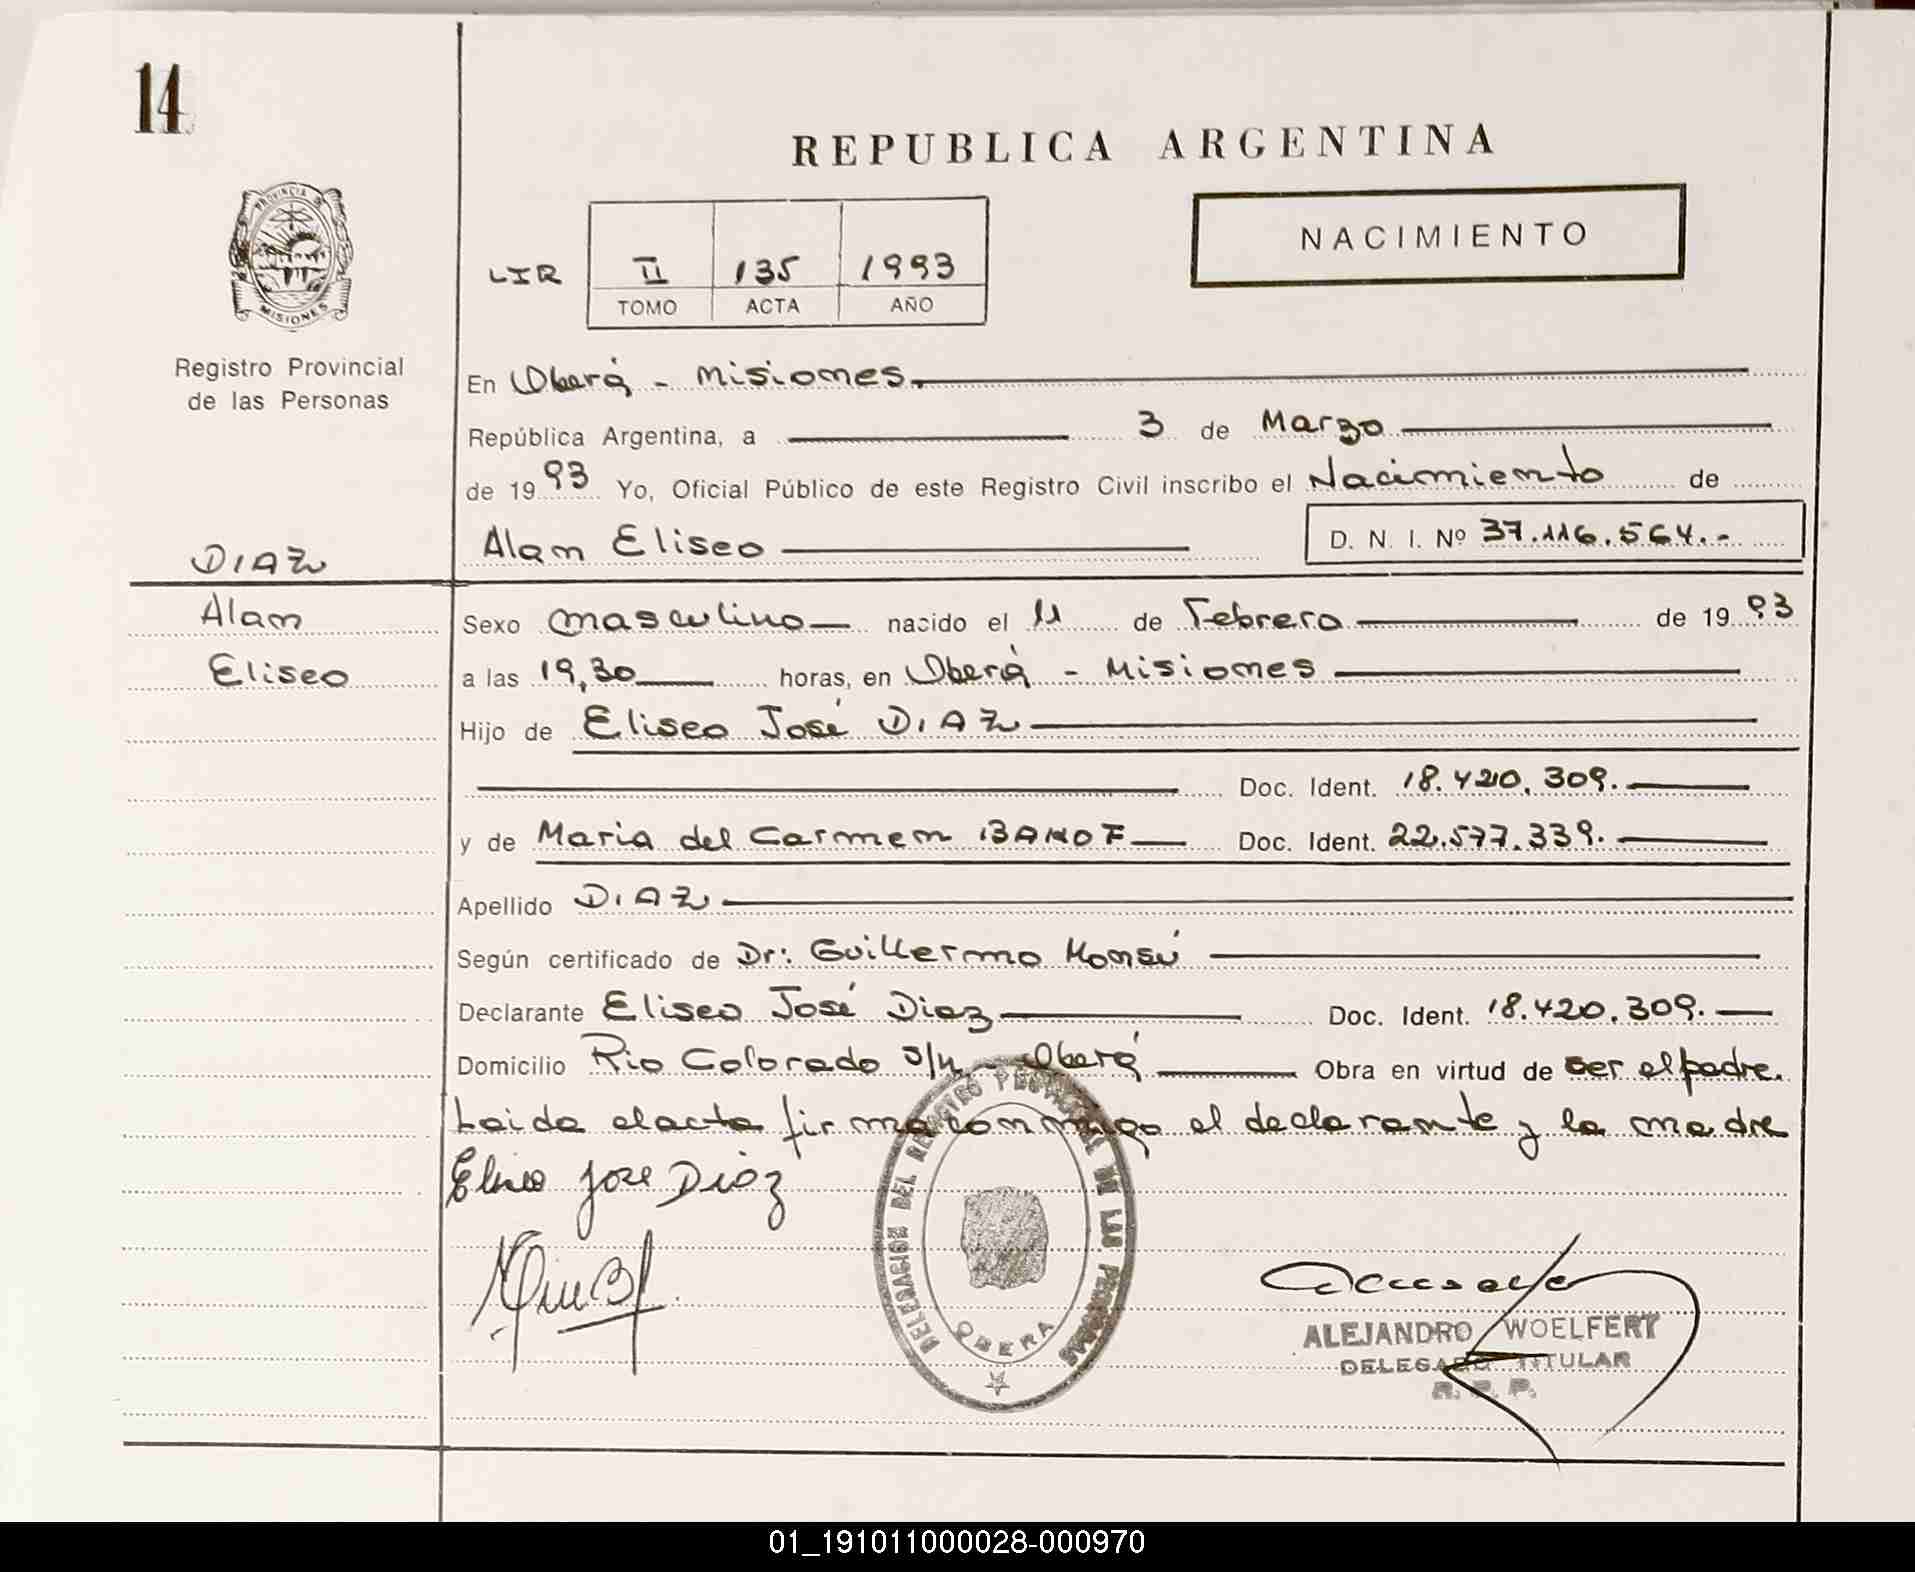 14
REPUBLICA ARGENTINA
PROVINCIA DE
MISIONES
NACIMIENTO
LIR II 135 1993
TOMO ACTA AÑO
Registro Provincial
de las Personas
En Oberá - Misiones.
República Argentina, a 3 de Marzo
de 1993 Yo, Oficial Público de este Registro Civil inscribo el Nacimiento de
Alan Eliseo D. N. I. Nº 37.116.564.-
DIAZ
Alan
Eliseo
Sexo masculino nacido el 11 de Febrero de 1993
a las 19,30 horas, en Oberá - Misiones
Hijo de Eliseo José DIAZ
Doc. Ident. 18.420.309.
y de Maria del Carmen BANOF Doc. Ident. 22.577.339.
Apellido DIAZ
Según certificado de Dr: Guillermo Monsú
Declarante Eliseo José Diaz Doc. Ident. 18.420.309.
Domicilio Rio Colorado s/n - Oberá Obra en virtud de ser el padre.
Leida el acta firma conmigo el declarante y la madre
Eliseo Jose Diaz
DELEGACION DEL REGISTRO PROVINCIAL DE LAS PERSONAS
OBERA
ALEJANDRO WOELFERT
DELEGADO TITULAR
R. P. P.
01_191011000028-000970